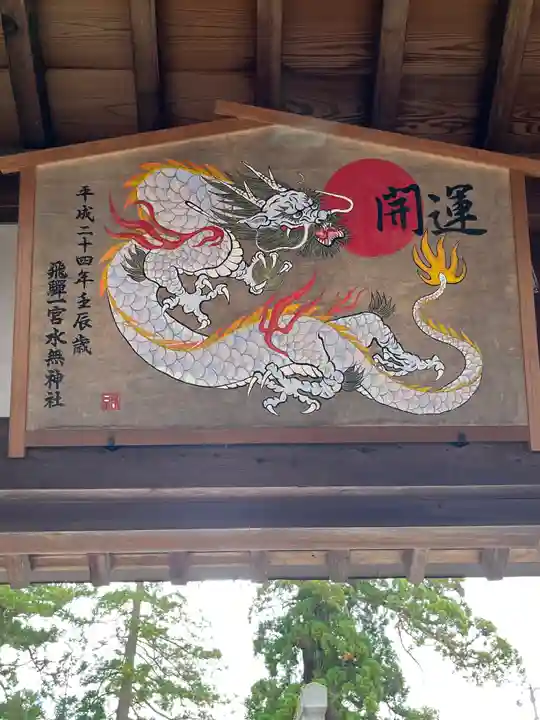 開運
平成二十四年壬辰歳
飛騨一宮水無神社